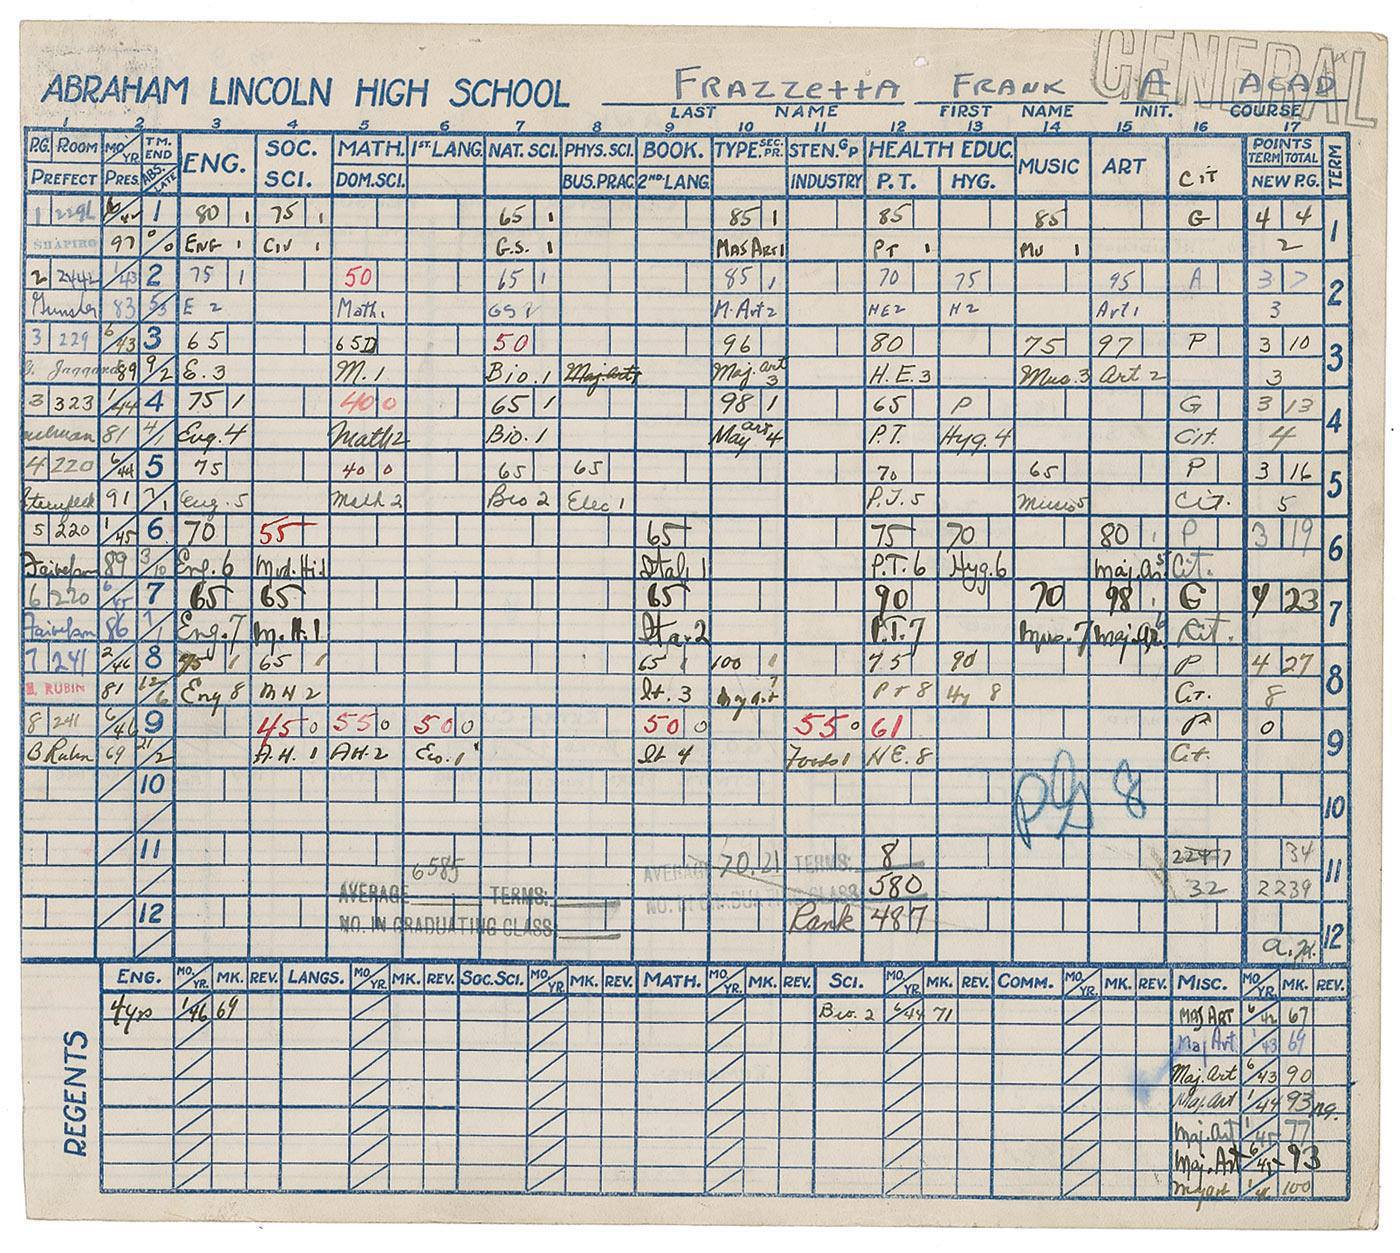 GENERAL
ABRAHAM LINCOLN HIGH SCHOOL FRAZZETTA FRANK A ACAD
LAST NAME FIRST NAME INIT. COURSE
1 2 3 4 5 6 7 8 9 10 11 12 13 14 15 16 17
P.G. ROOM MO/YR. TM. END ENG. SOC. SCI. MATH. 1ST. LANG. NAT. SCI. PHYS. SCI. BOOK. TYPE SEC. PR. STEN. GP HEALTH EDUC. MUSIC ART CIT POINTS TERM TOTAL TERM
PREFECT PRES. ABS. LATE DOM. SCI. BUS. PRAC. 2ND LANG. INDUSTRY P.T. HYG. NEW P.G.
1 229L 6/42 1 80 1 75 1 65 1 85 1 85 85 G 4 4 1
SHAPIRO 97 0/0 ENG 1 CIV 1 G.S. 1 MAJ ART 1 PT 1 MU 1 2
2 2442 1/43 2 75 1 50 65 1 85 1 70 75 95 A 3 7 2
83 5/3 E 2 Math 1 GS 2 M. Art 2 HE2 H2 Art 1 3
3 229 6/43 3 65 65D 50 96 80 75 97 P 3 10 3
89 9/2 E. 3 M. 1 Bio. 1 Maj. art Maj. art 3 H.E. 3 Mus. 3 Art 2 3
3 323 1/44 4 75 1 40 0 65 1 98 1 65 P G 3 13 4
81 4/1 Eng. 4 Math 2 Bio. 1 Maj art 4 P.T. Hyg. 4 Cit. 4
4 220 6/44 5 75 40 0 65 65 70 65 P 3 16 5
91 7/1 Eng. 5 Math 2 Bio 2 Elec 1 P.T. 5 Music 5 Cit. 5
5 220 1/45 6 70 55 65 75 70 80 1 P 3 19 6
89 3/10 Eng. 6 Mod. Hi. 1 Ital. 1 P.T. 6 Hyg. 6 Maj. Art 5 Cit.
6 220 6/45 7 65 65 65 90 70 98 1 G 4 23 7
86 7/1 Eng. 7 M. H. 1 Ita. 2 P.T. 7 Mus. 7 Maj. Art 6 Cit.
7 241 2/46 8 75 1 65 1 65 1 100 1 75 90 P 4 27 8
B. RUBIN 81 12/6 Eng 8 M H 2 It. 3 Maj art 7 PT 8 Hy 8 Cit. 8
8 241 6/46 9 45 0 55 0 50 0 50 0 55 0 61 P 0 9
B Rubin 69 21/2 A. H. 1 A.H. 2 Eco. 1 It 4 Foods 1 H.E. 8 Cit.
10 PG 8 10
11 6585 AVERAGE 70.21 TERMS: 8 2247 34 11
AVERAGE TERMS: NO. IN GRADUATING CLASS 580 32 2239
12 NO. IN GRADUATING CLASS Rank 487 12
REGENTS
ENG. MO/YR. MK. REV. LANGS. MO/YR. MK. REV. SOC. SCI. MO/YR. MK. REV. MATH. MO/YR. MK. REV. SCI. MO/YR. MK. REV. COMM. MO/YR. MK. REV. MISC. MO/YR. MK. REV.
4yrs 1/46 69 Bio. 2 6/44 71 MAJ ART 6/42 67
Maj Art 1/43 69
Maj. Art 6/43 90
Maj. Art 1/44 93
Maj. Art 1/45 77
Maj. Art 6/45 93
Maj art 1/46 100